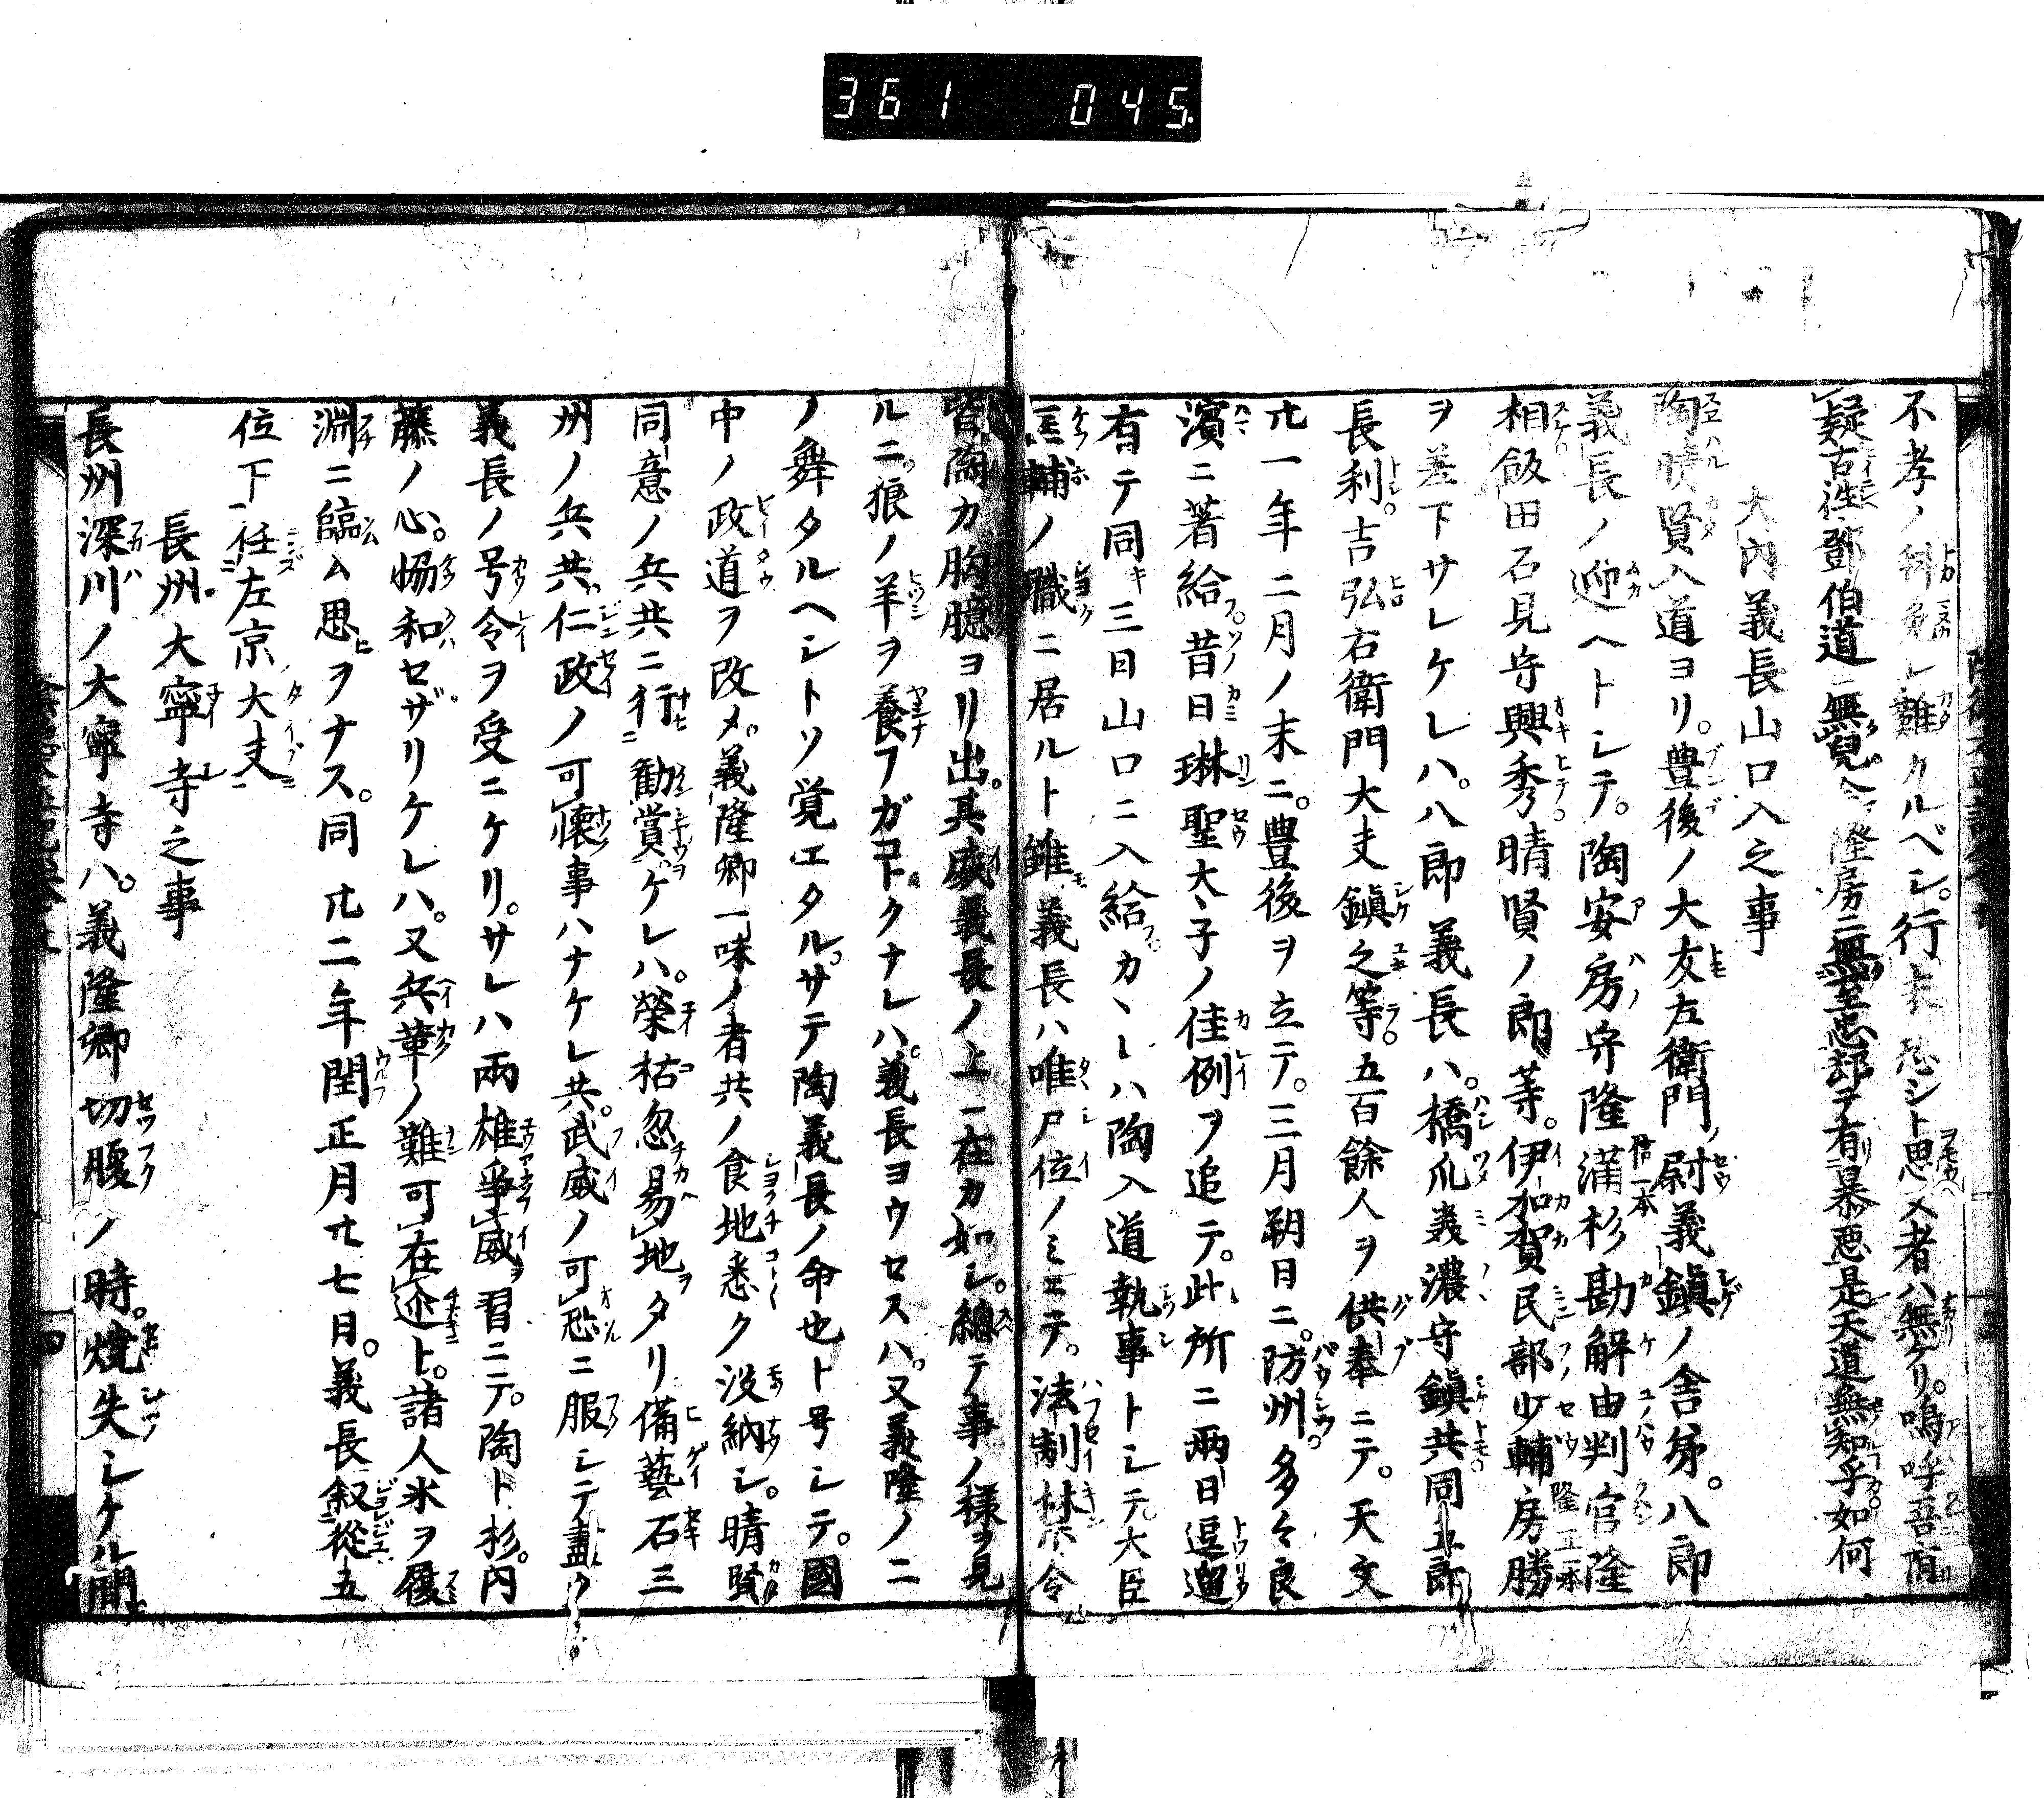 361 045
不孝ノ科免レ難カルベシ。行末恐シト思ヌ者ハ無ケリ。嗚呼吾有
疑古往鄧伯道ニ無兒今隆房ニ無至忠却テ有暴悪是天道無知乎如何
大内義長山口入之事
陶晴賢入道ヨリ。豊後ノ大友左衛門ノ尉義鎮ノ舎弟。八郎
義長ノ迎ヘトシテ。陶安房守隆満杉勘解由判官隆
相飯田石見守興秀。晴賢ノ郎等。伊加賀民部少輔房勝
ヲ差下サレケレハ。八郎義長ハ。橋爪美濃守鎮共同五郎
長利。吉弘右衛門大夫鎮之等。五百餘人ヲ供奉ニテ。天文
廿一年二月ノ末ニ。豊後ヲ立テ。三月朔日ニ。防州。多々良
濱ニ著給フ。昔日琳聖太子ノ佳例ヲ追テ。此所ニ兩日逗遛
有テ同キ三日山口ニ入給フ。カヽレハ陶入道執事トシテ。大臣
匡輔ノ職ニ居ルト雖モ義長ハ唯尸位ノミニテ。法制禁令
皆陶カ胸臆ヨリ出。其威義長ノ上ニ在カ如シ。總テ事ノ様ヲ見
ルニ。狼ノ羊ヲ養フガコトクナレハ。義長ヨウセスハ。又義隆ノ二
ノ舞タルヘシトソ覚エタル。サテ陶義長ノ命也ト号シテ。國
中ノ政道ヲ改メ。義隆卿一味ノ者共ノ食地悉ク没納シ。晴賢
同意ノ兵共ニ行ニ勸賞ケレハ。榮枯忽易地ヲタリ備藝石三
州ノ兵共。仁政ノ可懐事ハナケレ共。武威ノ可恐ニ服シテ盡ク
義長ノ号令ヲ受ニケリ。サレハ兩雄爭威ヲ習ニテ。陶ト杉。内
藤ノ心。恊和セザリケレハ。又兵革ノ難可在近ト。諸人氷ヲ履
淵ニ臨ム思ヲナス。同廿二年閏正月廿七日。義長叙從五
位下ニ任左京大夫ニ
長州大寧寺之事
長州深川ノ大寧寺ハ。義隆卿切腹ノ時。燒失シケル間